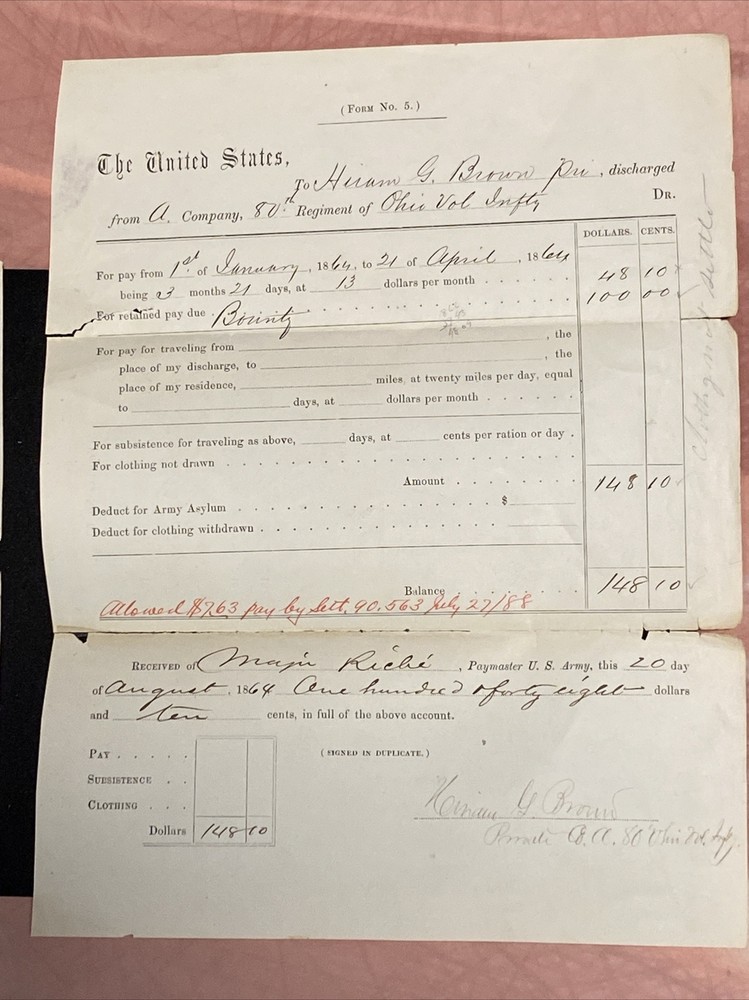 (Form No. 5.)
The United States,
To Hiram G. Brown Pri, discharged
from A. Company, 80th Regiment of Ohio Vol Infty Dr.
DOLLARS. CENTS.
For pay from 1st of January, 1864, to 21 of April, 1864
being 3 months 21 days, at 13 dollars per month . . . . . . 48 10
For retained pay due . Bounty . . . . . . 100 00
For pay for traveling from , the
place of my discharge, to , the
place of my residence, miles, at twenty miles per day, equal
to days, at dollars per month . . . . . .
For subsistence for traveling as above, days, at cents per ration or day .
For clothing not drawn . . . . . .
Amount . . . . . . 148 10
Deduct for Army Asylum . . . . . . $
Deduct for clothing withdrawn . . . . . .
Balance . . . . . . 148 10
Allowed $7.63 pay by Sett. 90.563 July 27/88
Received of Majr Riché, Paymaster U. S. Army, this 20 day
of August, 1864 One hundred & forty eight dollars
and ten cents, in full of the above account.
Pay . . . . .
(SIGNED IN DUPLICATE.)
Subsistence . .
Clothing . . .
Dollars 148 10
Hiram G. Brown
Private Co. A. 80 Ohio Vol. Infy.